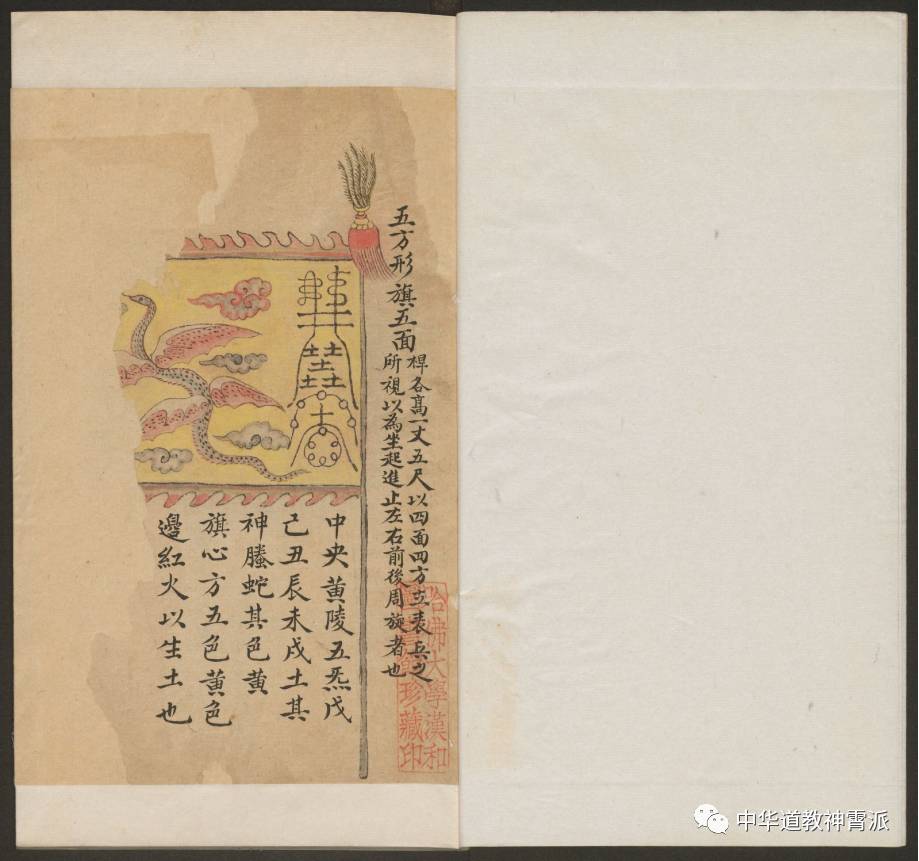 五方形旗五面
桿各高一丈五尺以四面四方立表兵之
所視以為坐起進止左右前後周旋者也
中央黃陵五炁戊
己丑辰未戌土其
神螣蛇其色黃
旗心方五色黃色
邊紅火以生土也
哈佛大學漢和
圖書館珍藏印
中华道教神霄派